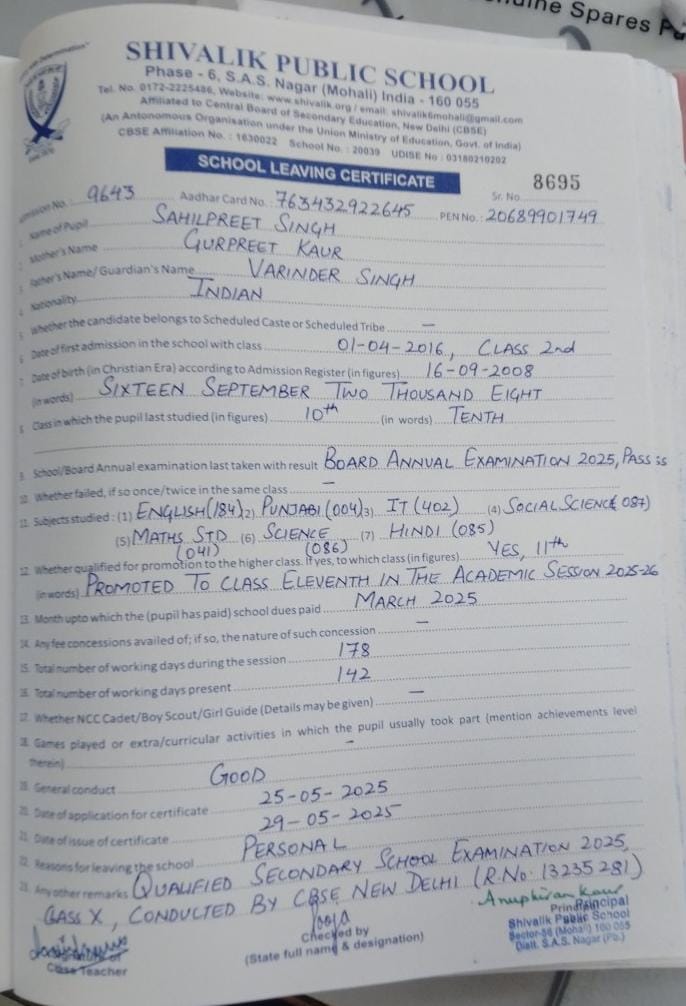 nuine Spares Pa
SHIVALIK PUBLIC SCHOOL
Phase - 6, S.A.S. Nagar (Mohali) India - 160 055
Tel. No. 0172-2225486, Website: www.shivalik.org / email: shivalik6mohali@gmail.com
Affiliated to Central Board of Secondary Education, New Delhi (CBSE)
(An Antonomous Organisation under the Union Ministry of Education, Govt. of India)
CBSE Affiliation No. : 1630022 School No. : 20039 UDISE No : 03180210202
SCHOOL LEAVING CERTIFICATE
Sr. No. 8695
Admission No. 9643 Aadhar Card No. : 763432922645 PEN No. : 20689901749
1. Name of Pupil SAHILPREET SINGH
2. Mother's Name GURPREET KAUR
3. Father's Name/ Guardian's Name VARINDER SINGH
4. Nationality INDIAN
5. Whether the candidate belongs to Scheduled Caste or Scheduled Tribe —
6. Date of first admission in the school with class 01-04-2016, CLASS 2nd
7. Date of birth (in Christian Era) according to Admission Register (in figures) 16-09-2008
(in words) SIXTEEN SEPTEMBER TWO THOUSAND EIGHT
8. Class in which the pupil last studied (in figures) 10th (in words) TENTH
9. School/Board Annual examination last taken with result BOARD ANNUAL EXAMINATION 2025, PASS
10. Whether failed, if so once/twice in the same class —
11. Subjects studied : (1) ENGLISH(184) 2) PUNJABI (004) 3) IT (402) (4) SOCIAL SCIENCE 087)
(5) MATHS STD (041) (6) SCIENCE (086) (7) HINDI (085)
12. Whether qualified for promotion to the higher class. If yes, to which class (in figures) YES, 11th
(in words) PROMOTED TO CLASS ELEVENTH IN THE ACADEMIC SESSION 2025-26
13. Month upto which the (pupil has paid) school dues paid MARCH 2025
14. Any fee concessions availed of; if so, the nature of such concession —
15. Total number of working days during the session 178
16. Total number of working days present 142
17. Whether NCC Cadet/Boy Scout/Girl Guide (Details may be given) —
18. Games played or extra/curricular activities in which the pupil usually took part (mention achievements level
therein) —
19. General conduct GOOD
20. Date of application for certificate 25-05-2025
21. Date of issue of certificate 29-05-2025
22. Reasons for leaving the school PERSONAL
23. Any other remarks QUALIFIED SECONDARY SCHOOL EXAMINATION 2025,
CLASS X, CONDUCTED BY CBSE NEW DELHI (R.No. 13235281)
Pooja
Anupkiran Kaur
Class Teacher
Checked by
(State full name & designation)
Principal
Principal
Shivalik Public School
Sector-56 (Mohali) 160 055
Distt. S.A.S. Nagar (Pb.)